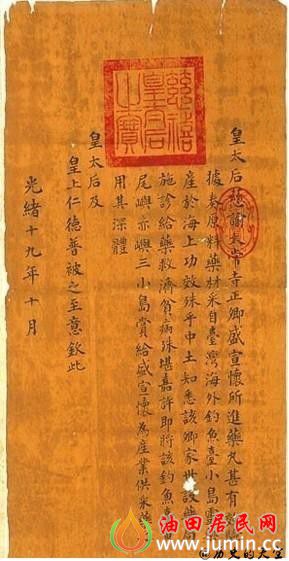 慈禧皇
之寶
皇太后慈諭太常寺正卿盛宣懷所進藥丸甚有效
據奏原料藥材采自臺灣海外釣魚臺小島靈藥
產於海上功效殊乎中土知悉該卿家世設藥局
施診給藥救濟貧病殊堪嘉許即將該釣魚臺
尾嶼赤嶼三小島賞給盛宣懷為產業供采藥
用其深體
皇太后及
皇上仁德普被之至意欽此
光緒十九年十月
油田居民网
www.jumin.cc
@历史的天空